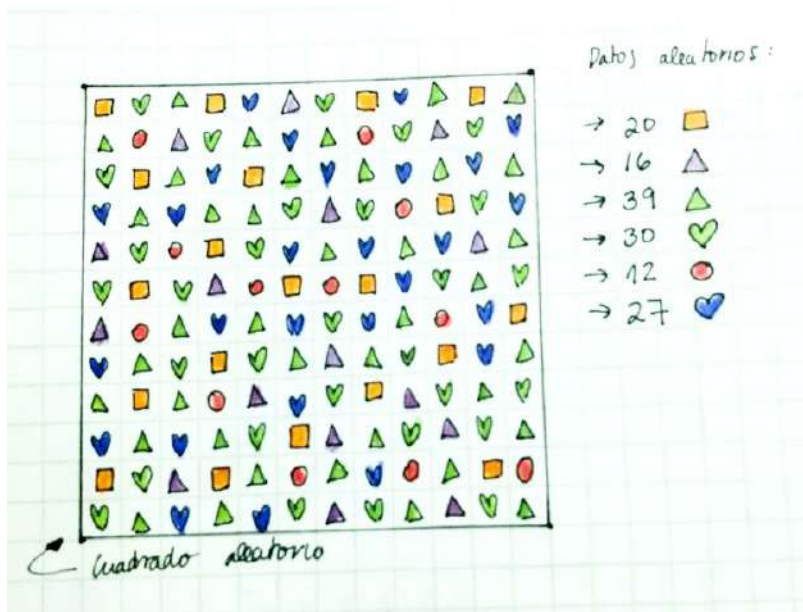 Datos aleatorios:
→ 20
→ 16
→ 39
→ 30
→ 12
→ 27
Cuadrado aleatorio